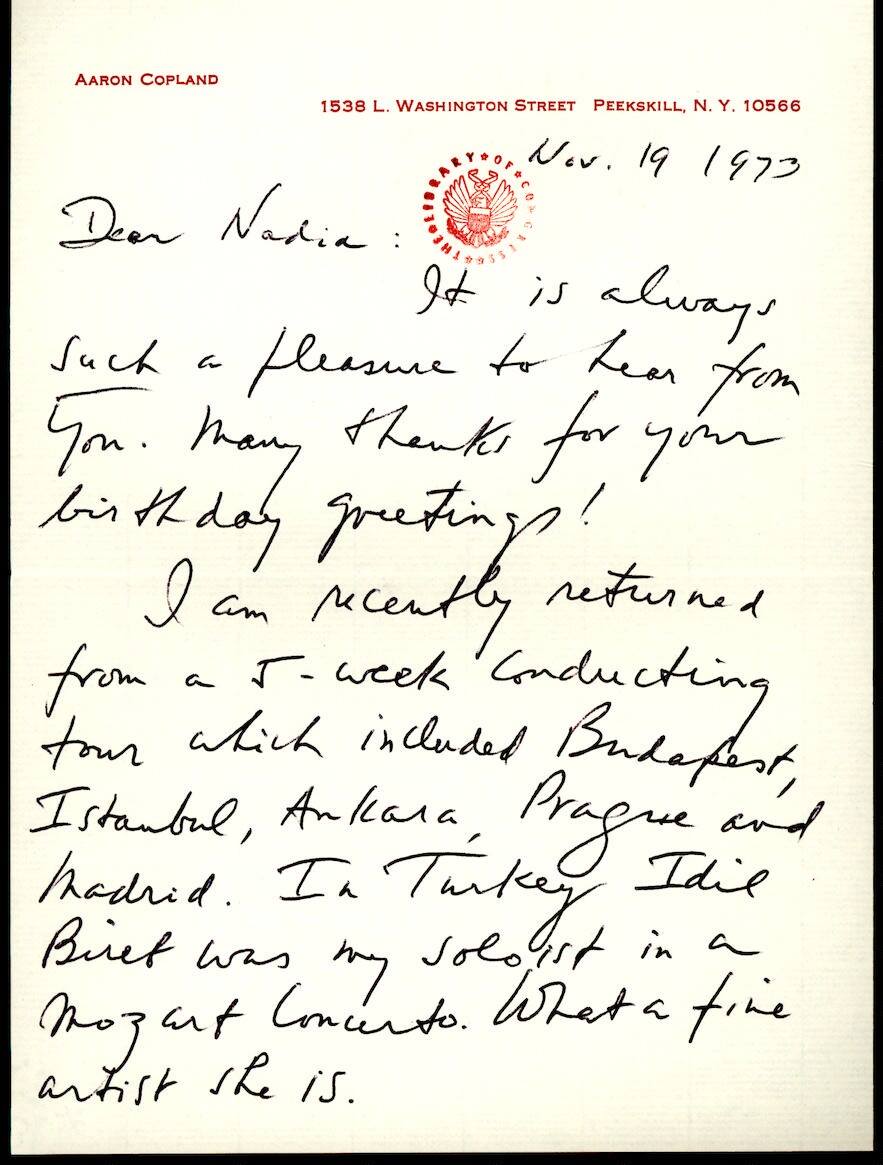 AARON COPLAND
1538 L. WASHINGTON STREET PEEKSKILL, N. Y. 10566
Nov. 19 1973
THE LIBRARY OF CONGRESS
Dear Nadia :
It is always
such a pleasure to hear from
you. Many thanks for your
birthday greetings!
I am recently returned
from a 5-week conducting
tour which included Budapest,
Istanbul, Ankara, Prague and
Madrid. In Turkey Idil
Biret was my soloist in a
Mozart Concerto. What a fine
artist she is.